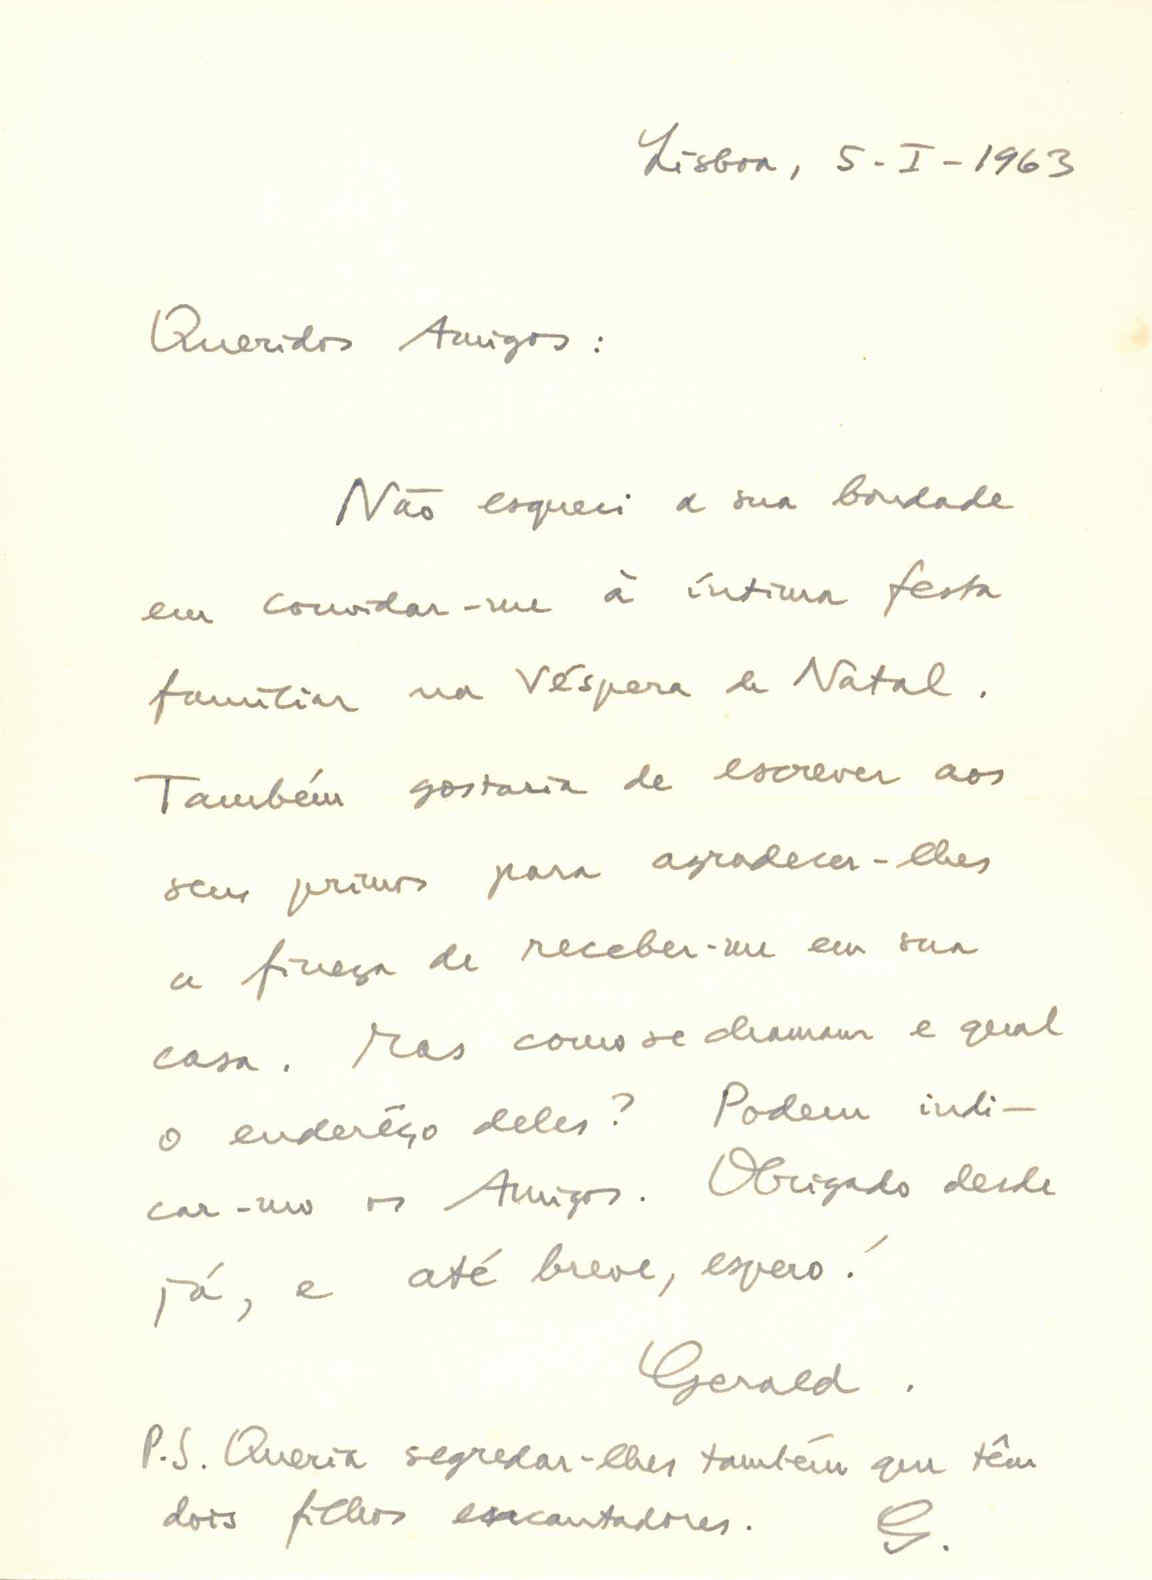 Lisboa, 5-I-1963
Queridos Amigos:
Não esqueci a sua bondade
em convidar-me à íntima festa
familiar na Véspera de Natal.
Também gostaria de escrever aos
seus primos para agradecer-lhes
a fineza de receber-me em sua
casa. Mas como se chamam e qual
o enderêço deles? Podem indi-
car-mo os Amigos. Obrigado desde
já, e até breve, espero!
Gerald.
P.S. Queria segredar-lhes também que têm
dois filhos encantadores. G.